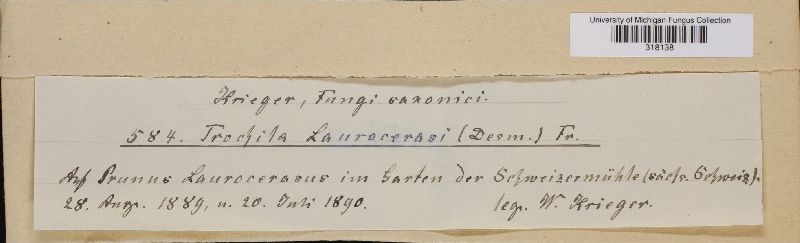 University of Michigan Fungus Collection
318138
Krieger, Fungi saxonici.
584. Trochila Laurocerasi (Desm.) Fr.
Auf Prunus Laurocerasus im Garten der Schweizermühle (sächs. Schweiz).
28. Aug. 1889, u. 20. Juli 1890.
leg. W. Krieger.